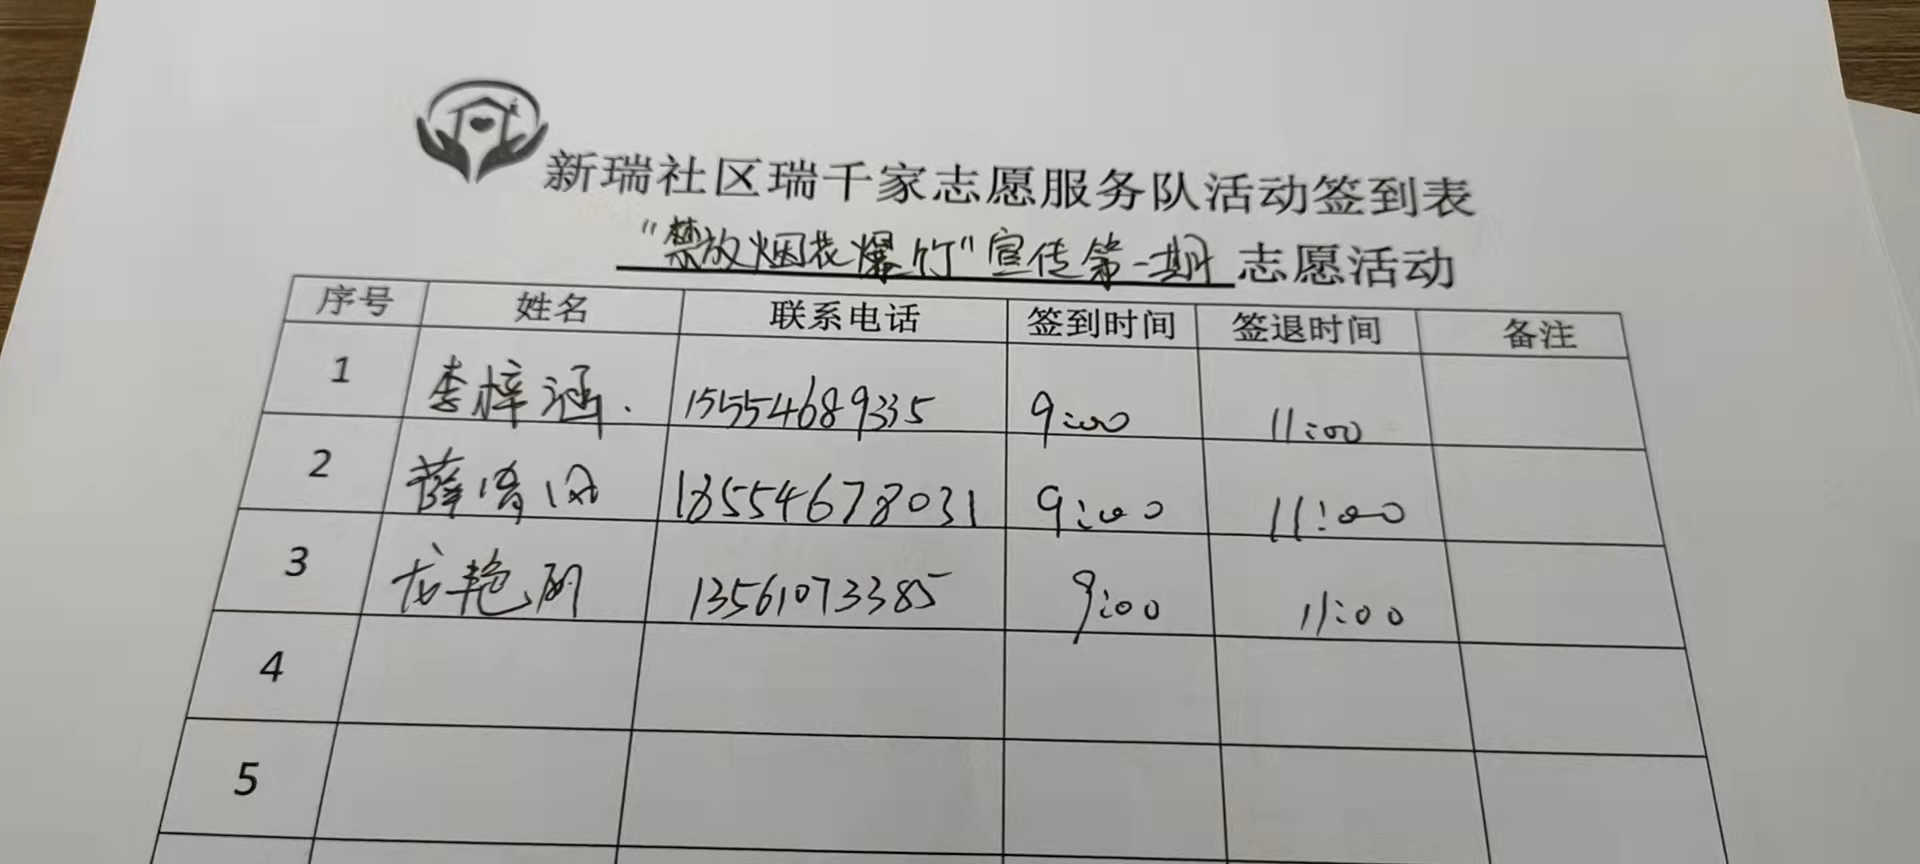 新瑞社区瑞千家志愿服务队活动签到表
“禁放烟花爆竹”宣传第一期 志愿活动
序号 姓名 联系电话 签到时间 签退时间 备注
1 李梓涵. 15554689335 9:00 11:00
2 薛 18554678031 9:00 11:00
3 龙艳丽 13561073385 9:00 11:00
4
5